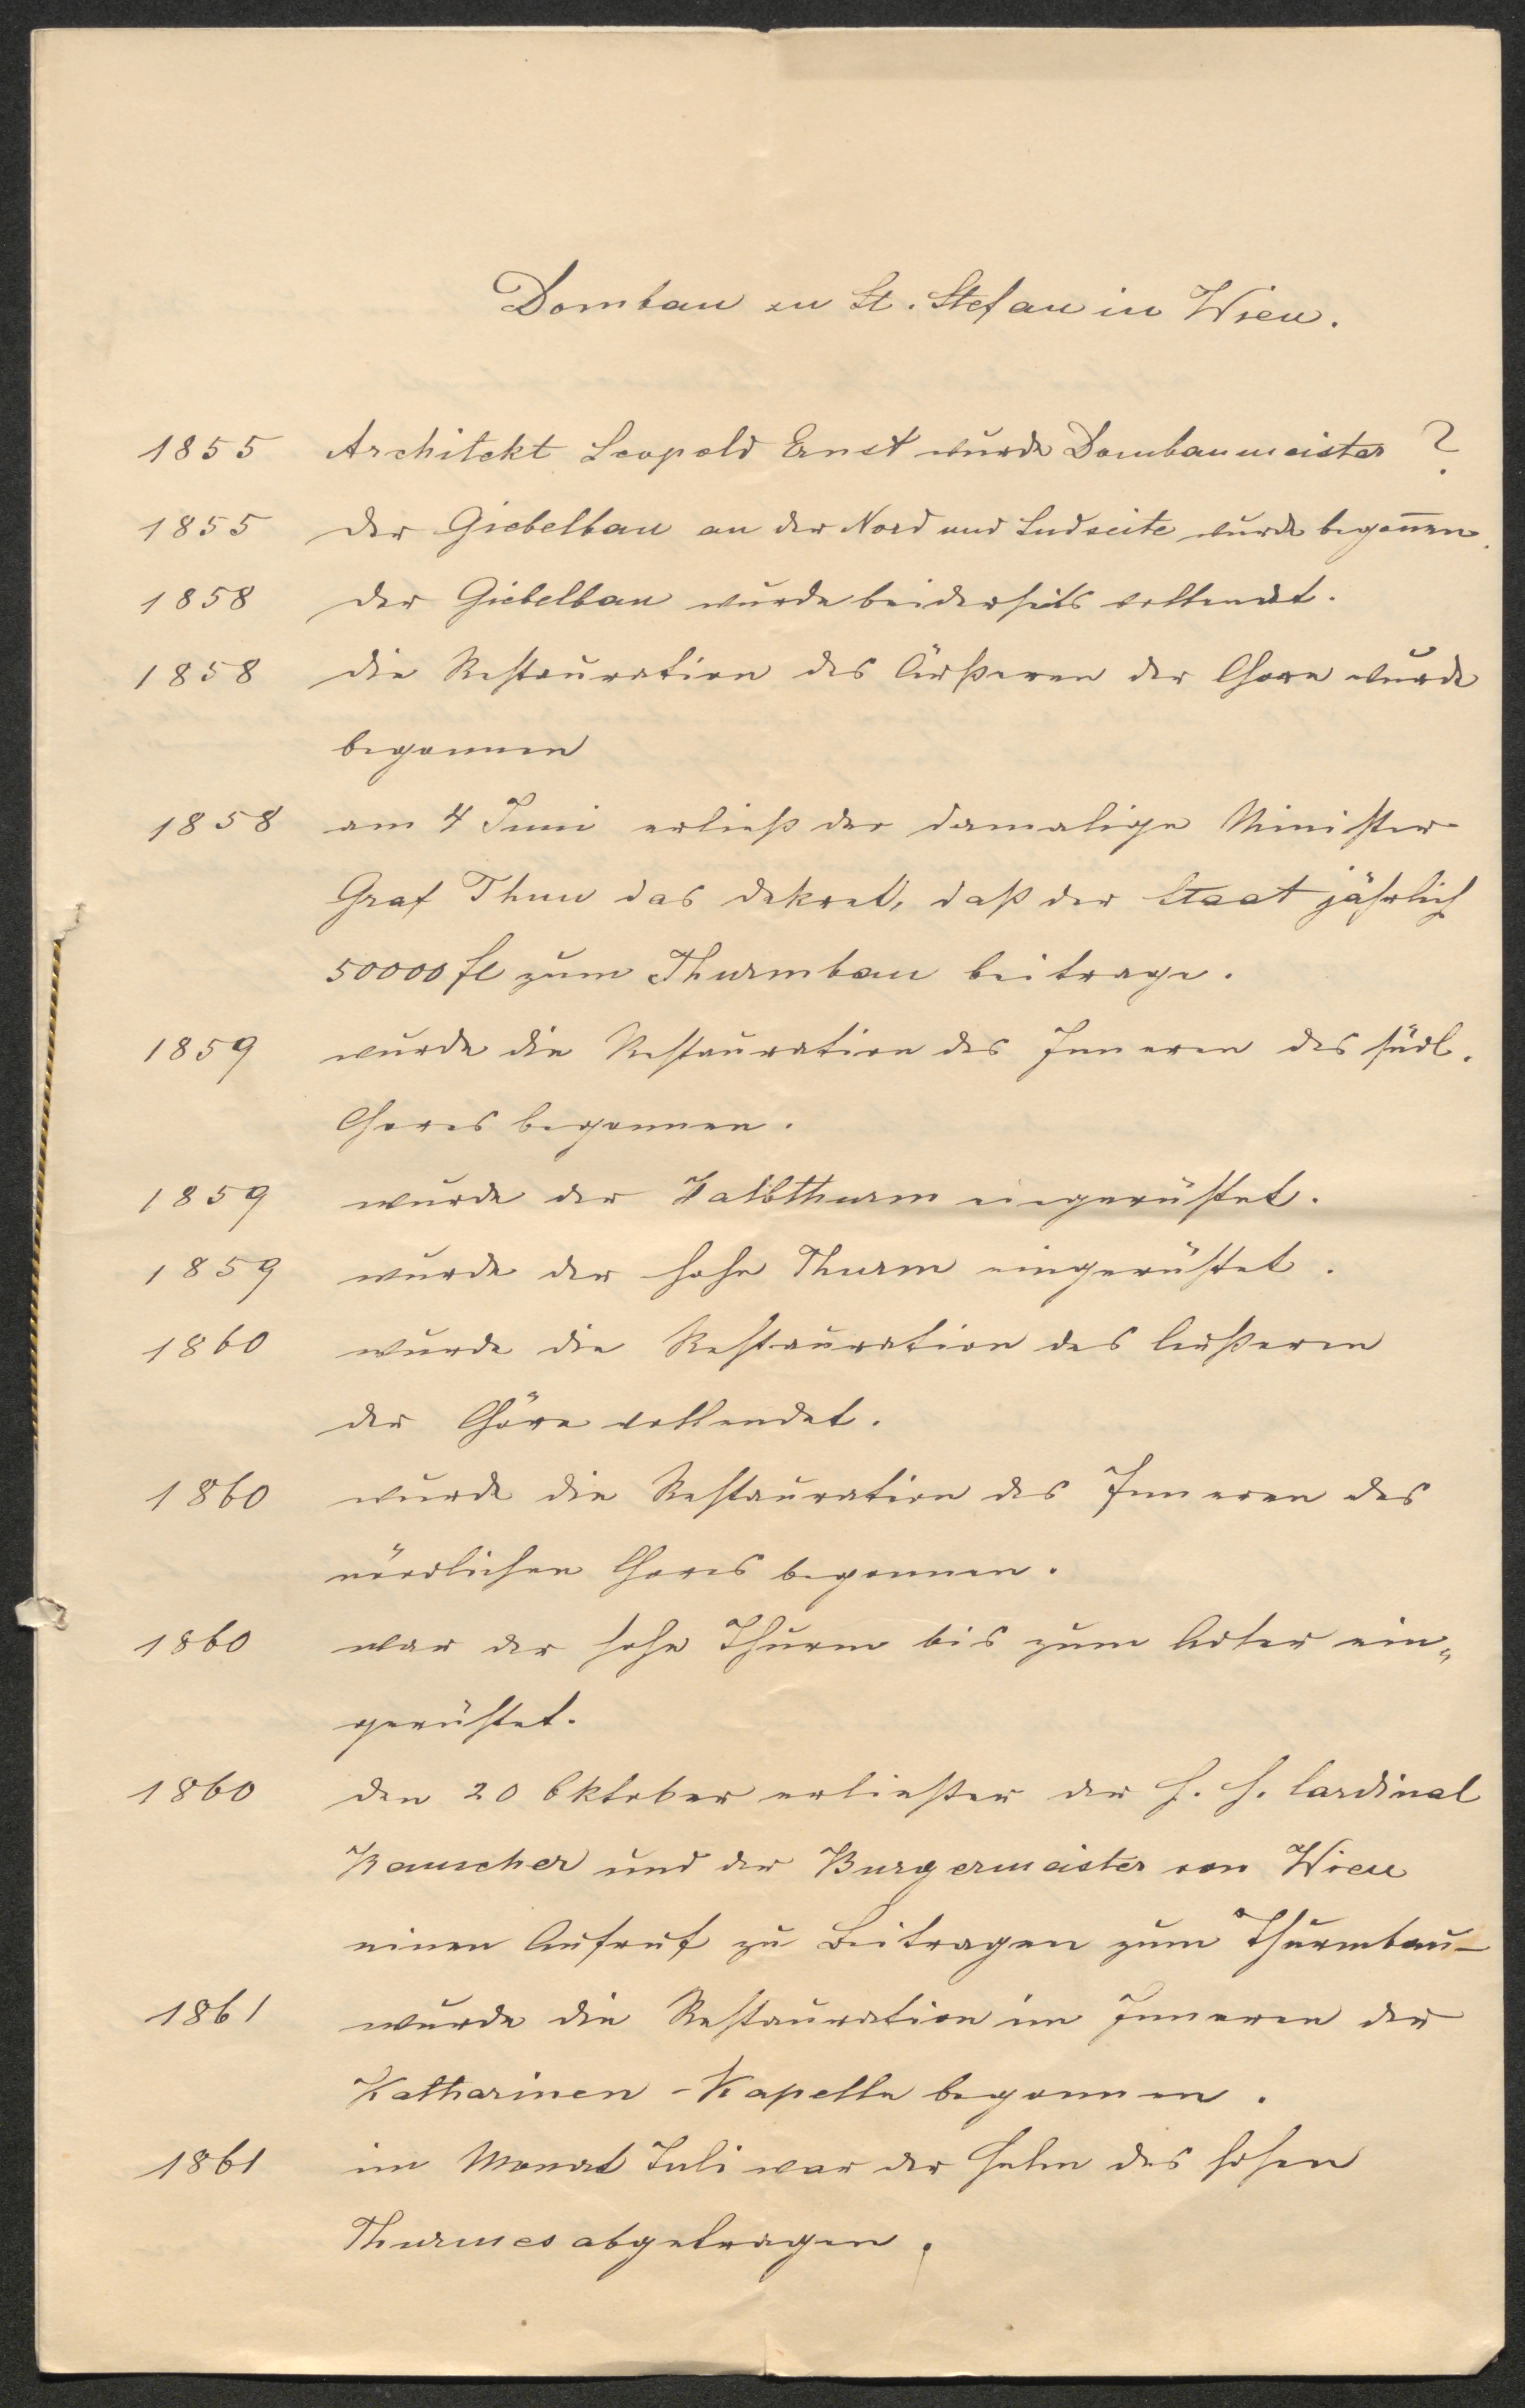 Dombau zu St. Stefan in Wien.
1855 Architekt Leopold Ernst wurde Dombaumeister ?
1855 der Giebelbau an der Nord und Sudseite wurde begon̄en.
1858 der Giebelbau wurde beiderseits vollendet.
1858 die Restauration des Äußeren der Chore wurde
begonnen
1858 am 4 Juni erließ der damalige Minister
Graf Thun das dekret, daß der Staat jährlich
50000 fl zum Thurmbau beitrage.
1859 wurde die Restauration des Inneren des südl.
Chores begonnen.
1859 wurde der Halbthurm eingerüstet.
1859 wurde der hohe Thurm eingerüstet.
1860 wurde die Restauration des Äußeren
der Chöre vollendet.
1860 wurde die Restauration des Inneren des
nördlichen Chores begonnen.
1860 war der hohe Thurm bis zum Adler ein„
gerüstet.
1860 den 20 Oktober erließen der H. H. Cardinal
Rauscher und der Burgermeister von Wien
einen Aufruf zu Beitragen zum Thurmbau-
1861 wurde die Restauration im Inneren der
Katharinen-Kapelle begonnen.
1861 im Monat Juli war der Helm des hohen
Thurmes abgetragen.